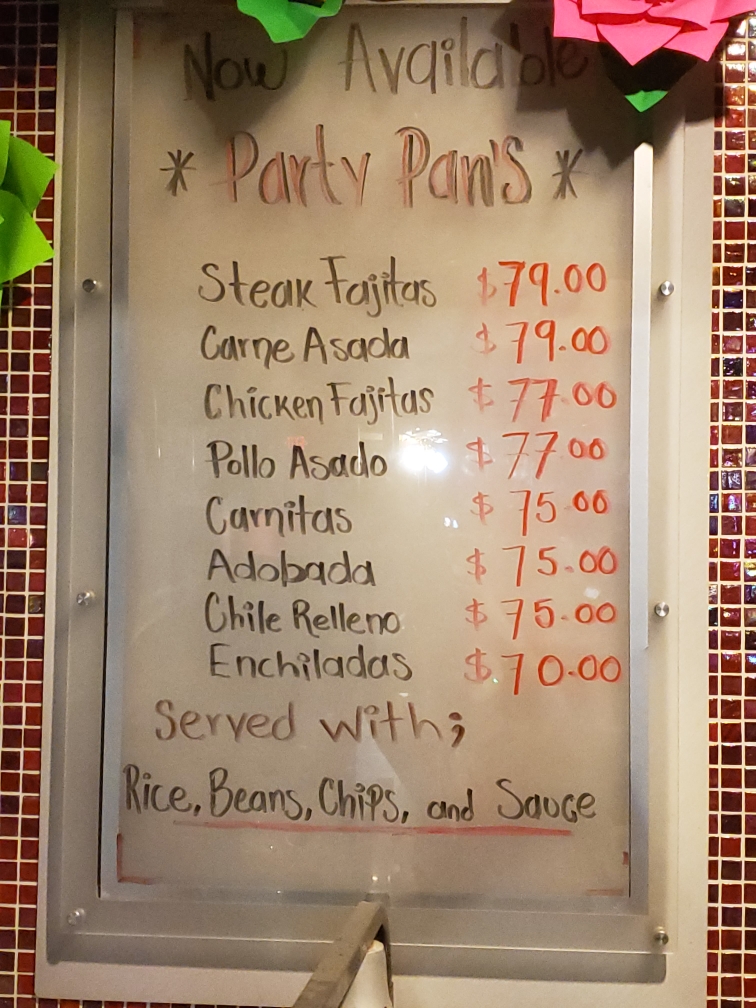 Now Available
* Party Pan's *
Steak Fajitas $79.00
Carne Asada $79.00
Chicken Fajitas $77.00
Pollo Asado $77.00
Carnitas $75.00
Adobada $75.00
Chile Relleno $75.00
Enchiladas $70.00
Served with;
Rice, Beans, Chips, and Sauce